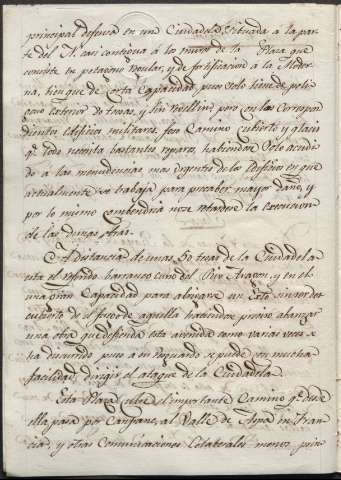 principal defensa en una Ciudadela situada a la par-
te del N. casi contigua à los muros de la Plaza que
consiste en pentagono regular, y de fortificacion à la Moder-
na, bien que de corta Capacidad, pues solo tiene de poligono
exterior de tuesas, y sin rebellines pero con los correspon-
dientes edificios militares, foso Camino cubierto y glacis
qe. todo necesita bastantes reparos, habiendose solo acudi-
do à las menudencias mas urgentes de los Edificios en que
actualmente se trabaja para precaber mayor daño, y
por lo mismo combendria no se retardase la execucion
de las demas obras.
A distancia de unas 50 tuesas de la Ciudadela
esta el referido barranco cauce del Rio Aragon, y en el
una gran Capacidad para abrigarse un Exto. sin ser des
cubierto de el fuego de aquella haciendose preciso abanzar
una obra que defienda esta avenida como varias veces se
ha discurrido pues a su resguardo se puede con mucha
facilidad dirigir el ataque de la Ciudadela.
Esta Plaza cubre el importante Camino qe. desde
ella pasa por Canfranc, al Valle de Aspe en Fran-
cia, y otras Comunicaciones Colaterales menos prin